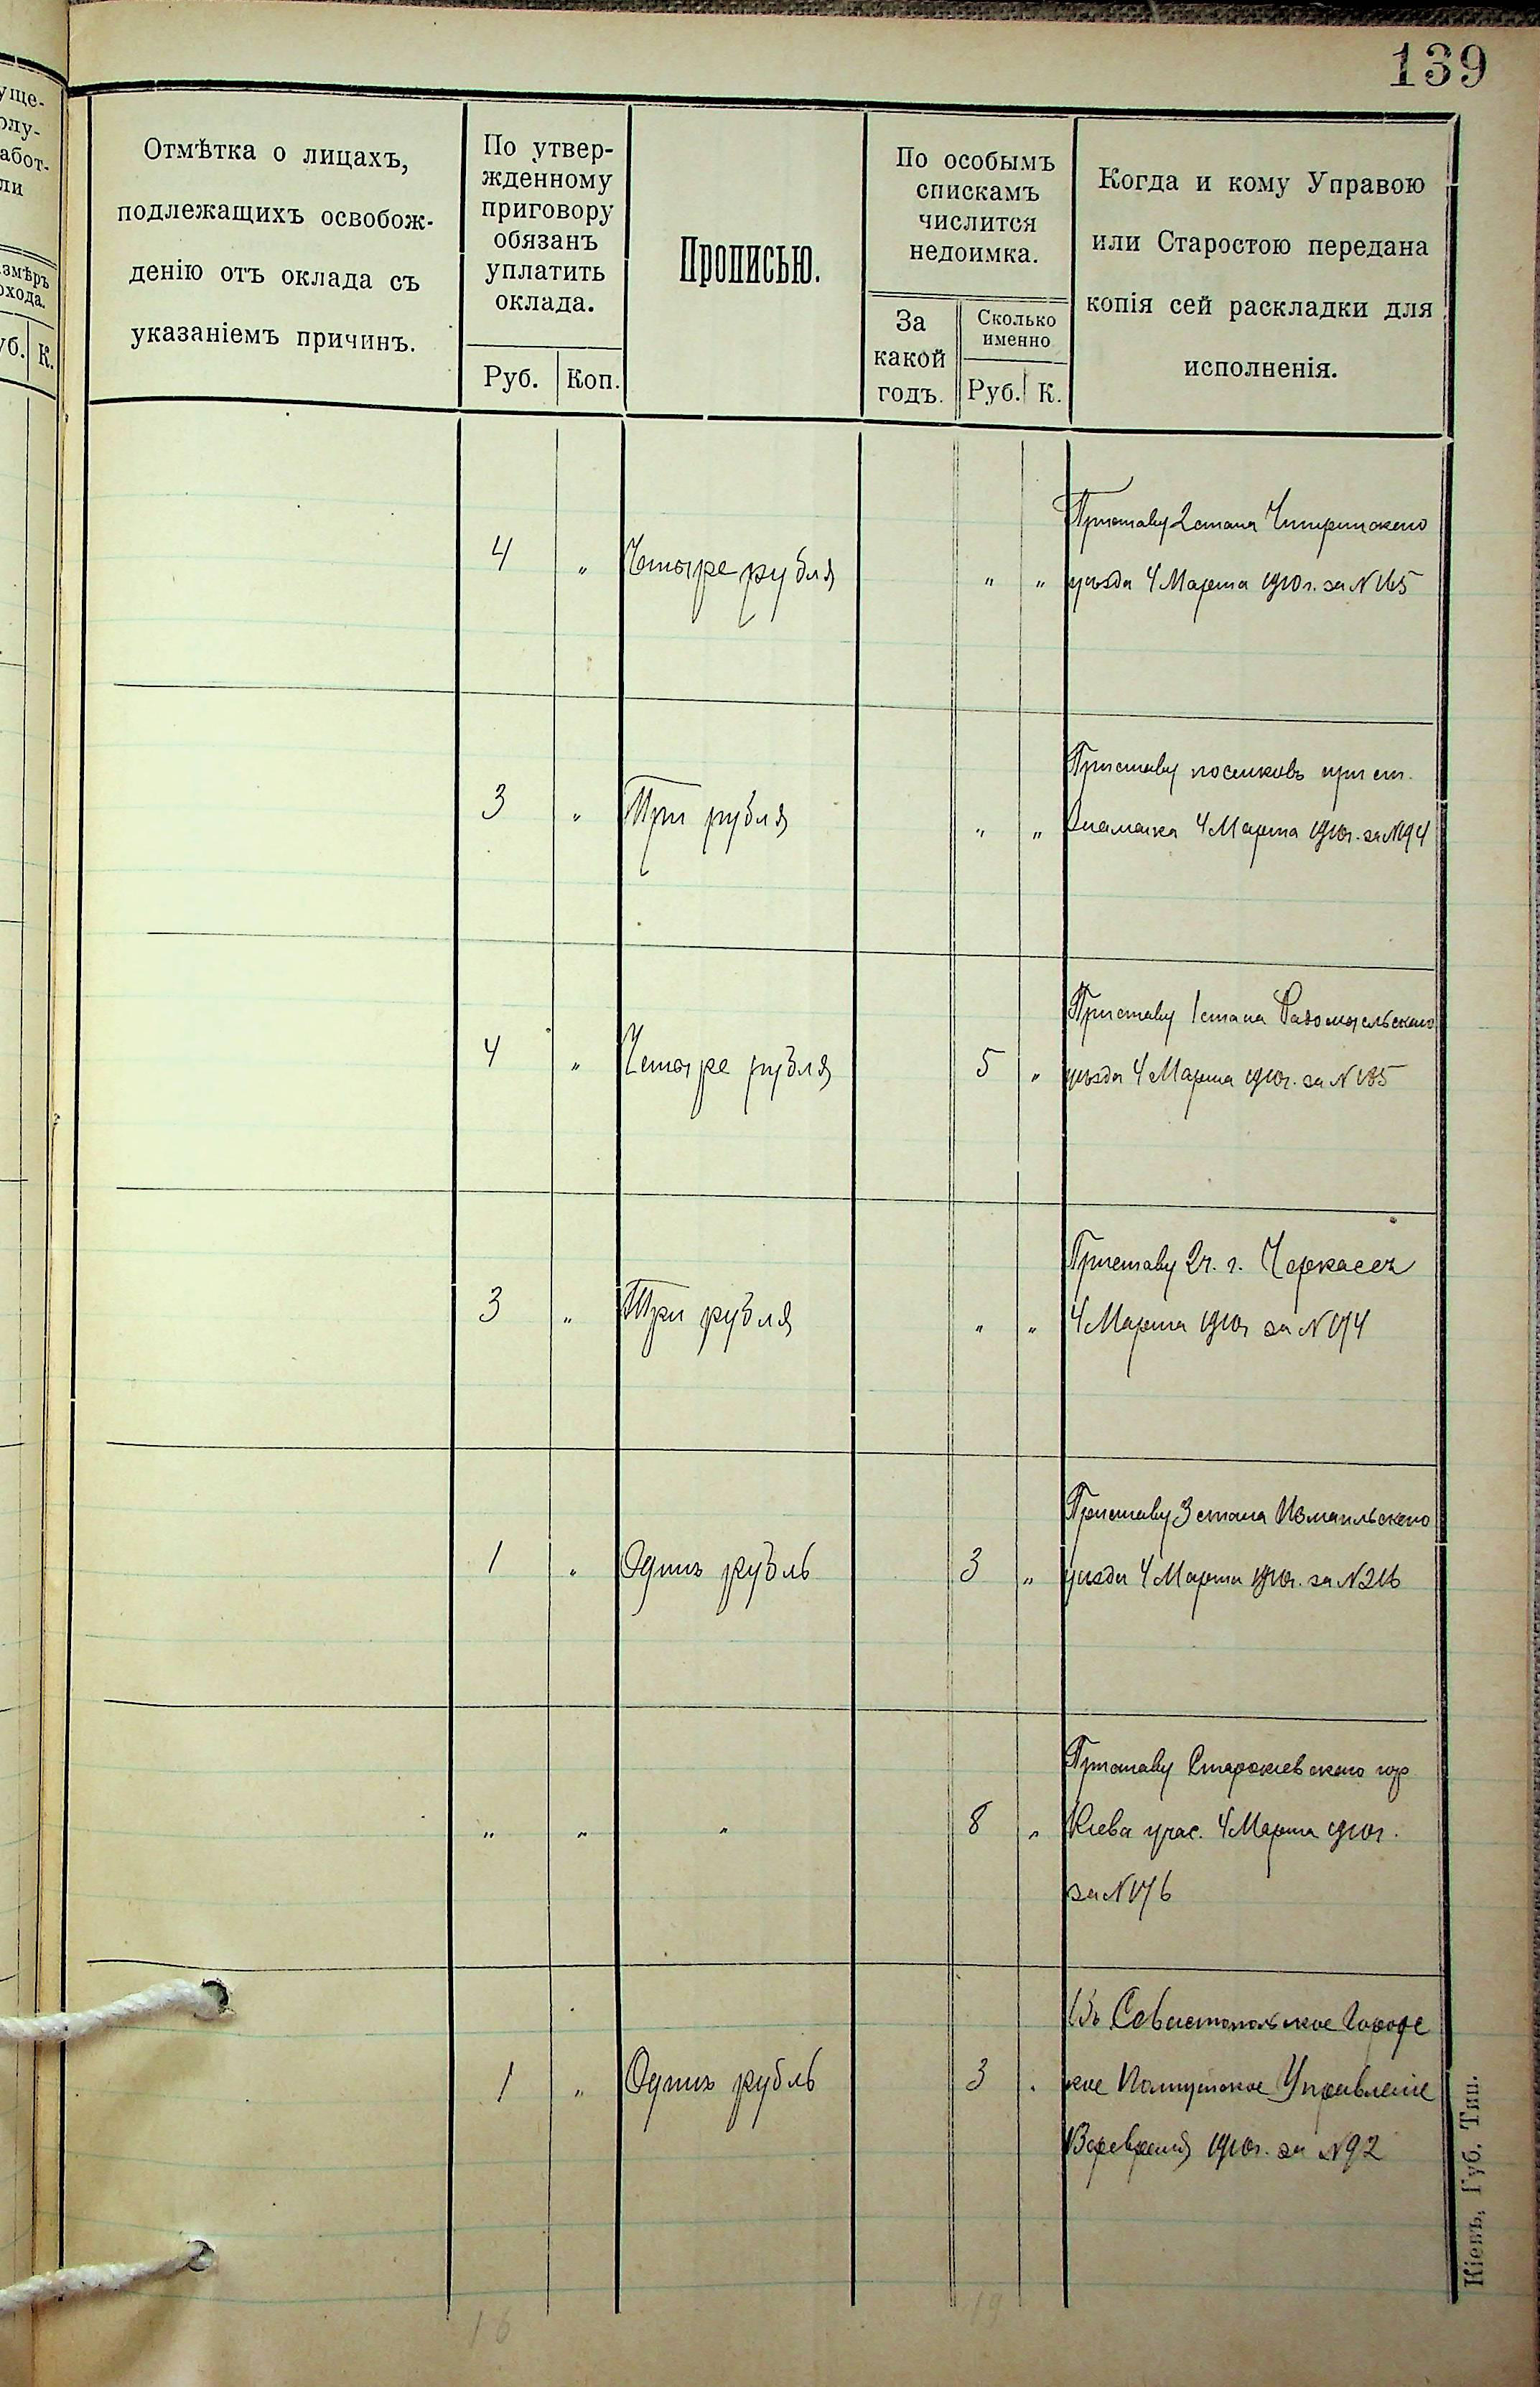 139
уще-
олу-
абот-
ли
змѣръ
охода.
уб. К.
Отмѣтка о лицахъ,
подлежащихъ освобож-
денію отъ оклада съ
указаніемъ причинъ.
По утвер-
жденному
приговору
обязанъ
уплатить
оклада.
Руб. Коп.
Прописью.
По особымъ
спискамъ
числится
недоимка.
За
какой
годъ.
Сколько
именно
Руб. К.
Когда и кому Управою
или Старостою передана
копія сей раскладки для
исполненія.
Приставу 2 стана Чигиринскаго
4 " Четыре рубля " " уѣзда 4 Марта 1910 г. за N 165
Приставу поселковъ при ст.
3 " Три рубля " " Знаменка 4 Марта 1910 г. за N 194
Приставу 1 стана Радомысльскаго
4 " Четыре рубля 5 " уѣзда 4 Марта 1910 г. за N 185
Приставу 2 ч. г. Черкассъ
3 " Три рубля " " 4 Марта 1910 г. за N 174
Приставу 3 стана Измаильскаго
1 " Одинъ рубль 3 " уѣзда 4 Марта 1910 г. за N 216
Приставу Старокіевскаго гор
" " " 8 " Кіева учас. 4 Марта 1910 г.
за N 176
Въ Севастопольское Городс
1 " Одинъ рубль 3 " кое Полицейское Управленіе
1910 г. за N 92
16 19
Кіевъ, Губ. Тип.